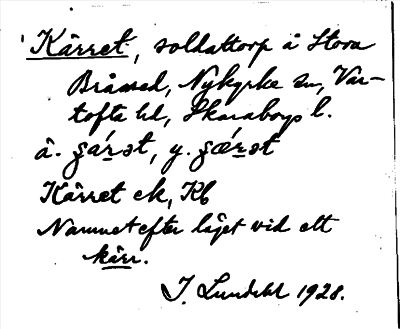 Kärret, soldattorp å Stora
Bråared, Nykyrke sn, Var-
tofta hd, Skaraborgs l.
ä. gár̲ət, y. gǽr̲ət
Kärret ek, Kb
Namnet efter läget vid ett
kärr.
J. Lundahl 1928.